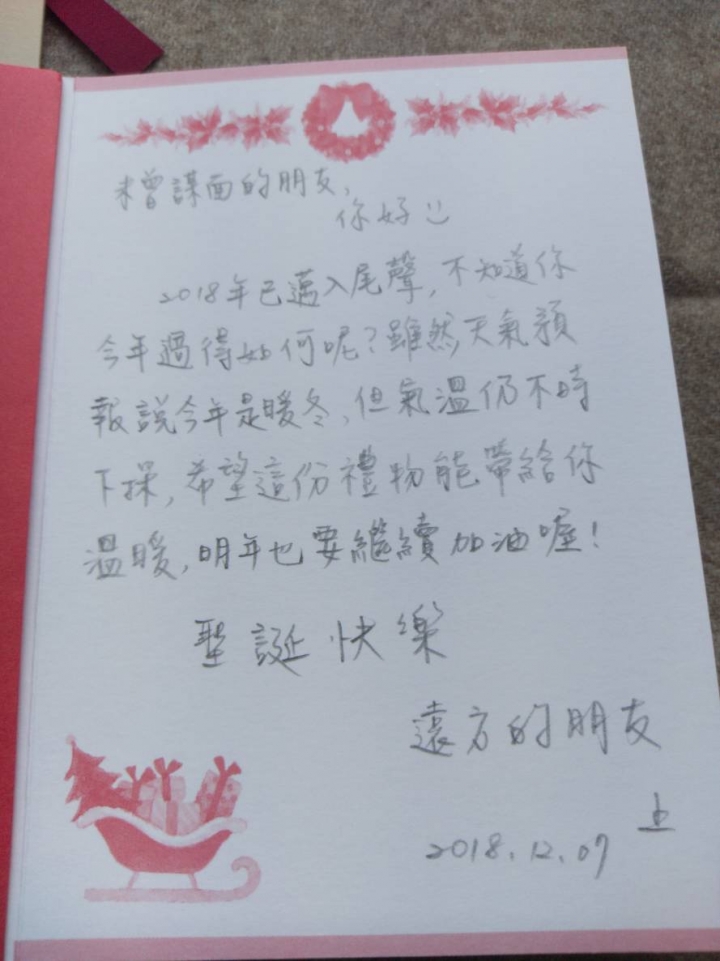 未曾謀面的朋友，
你好
2018年已邁入尾聲，不知道你
今年過得如何呢？雖然天氣預
報說今年是暖冬，但氣溫仍不時
下探，希望這份禮物能帶給你
溫暖，明年也要繼續加油喔！
聖誕快樂
遠方的朋友
上
2018.12.07